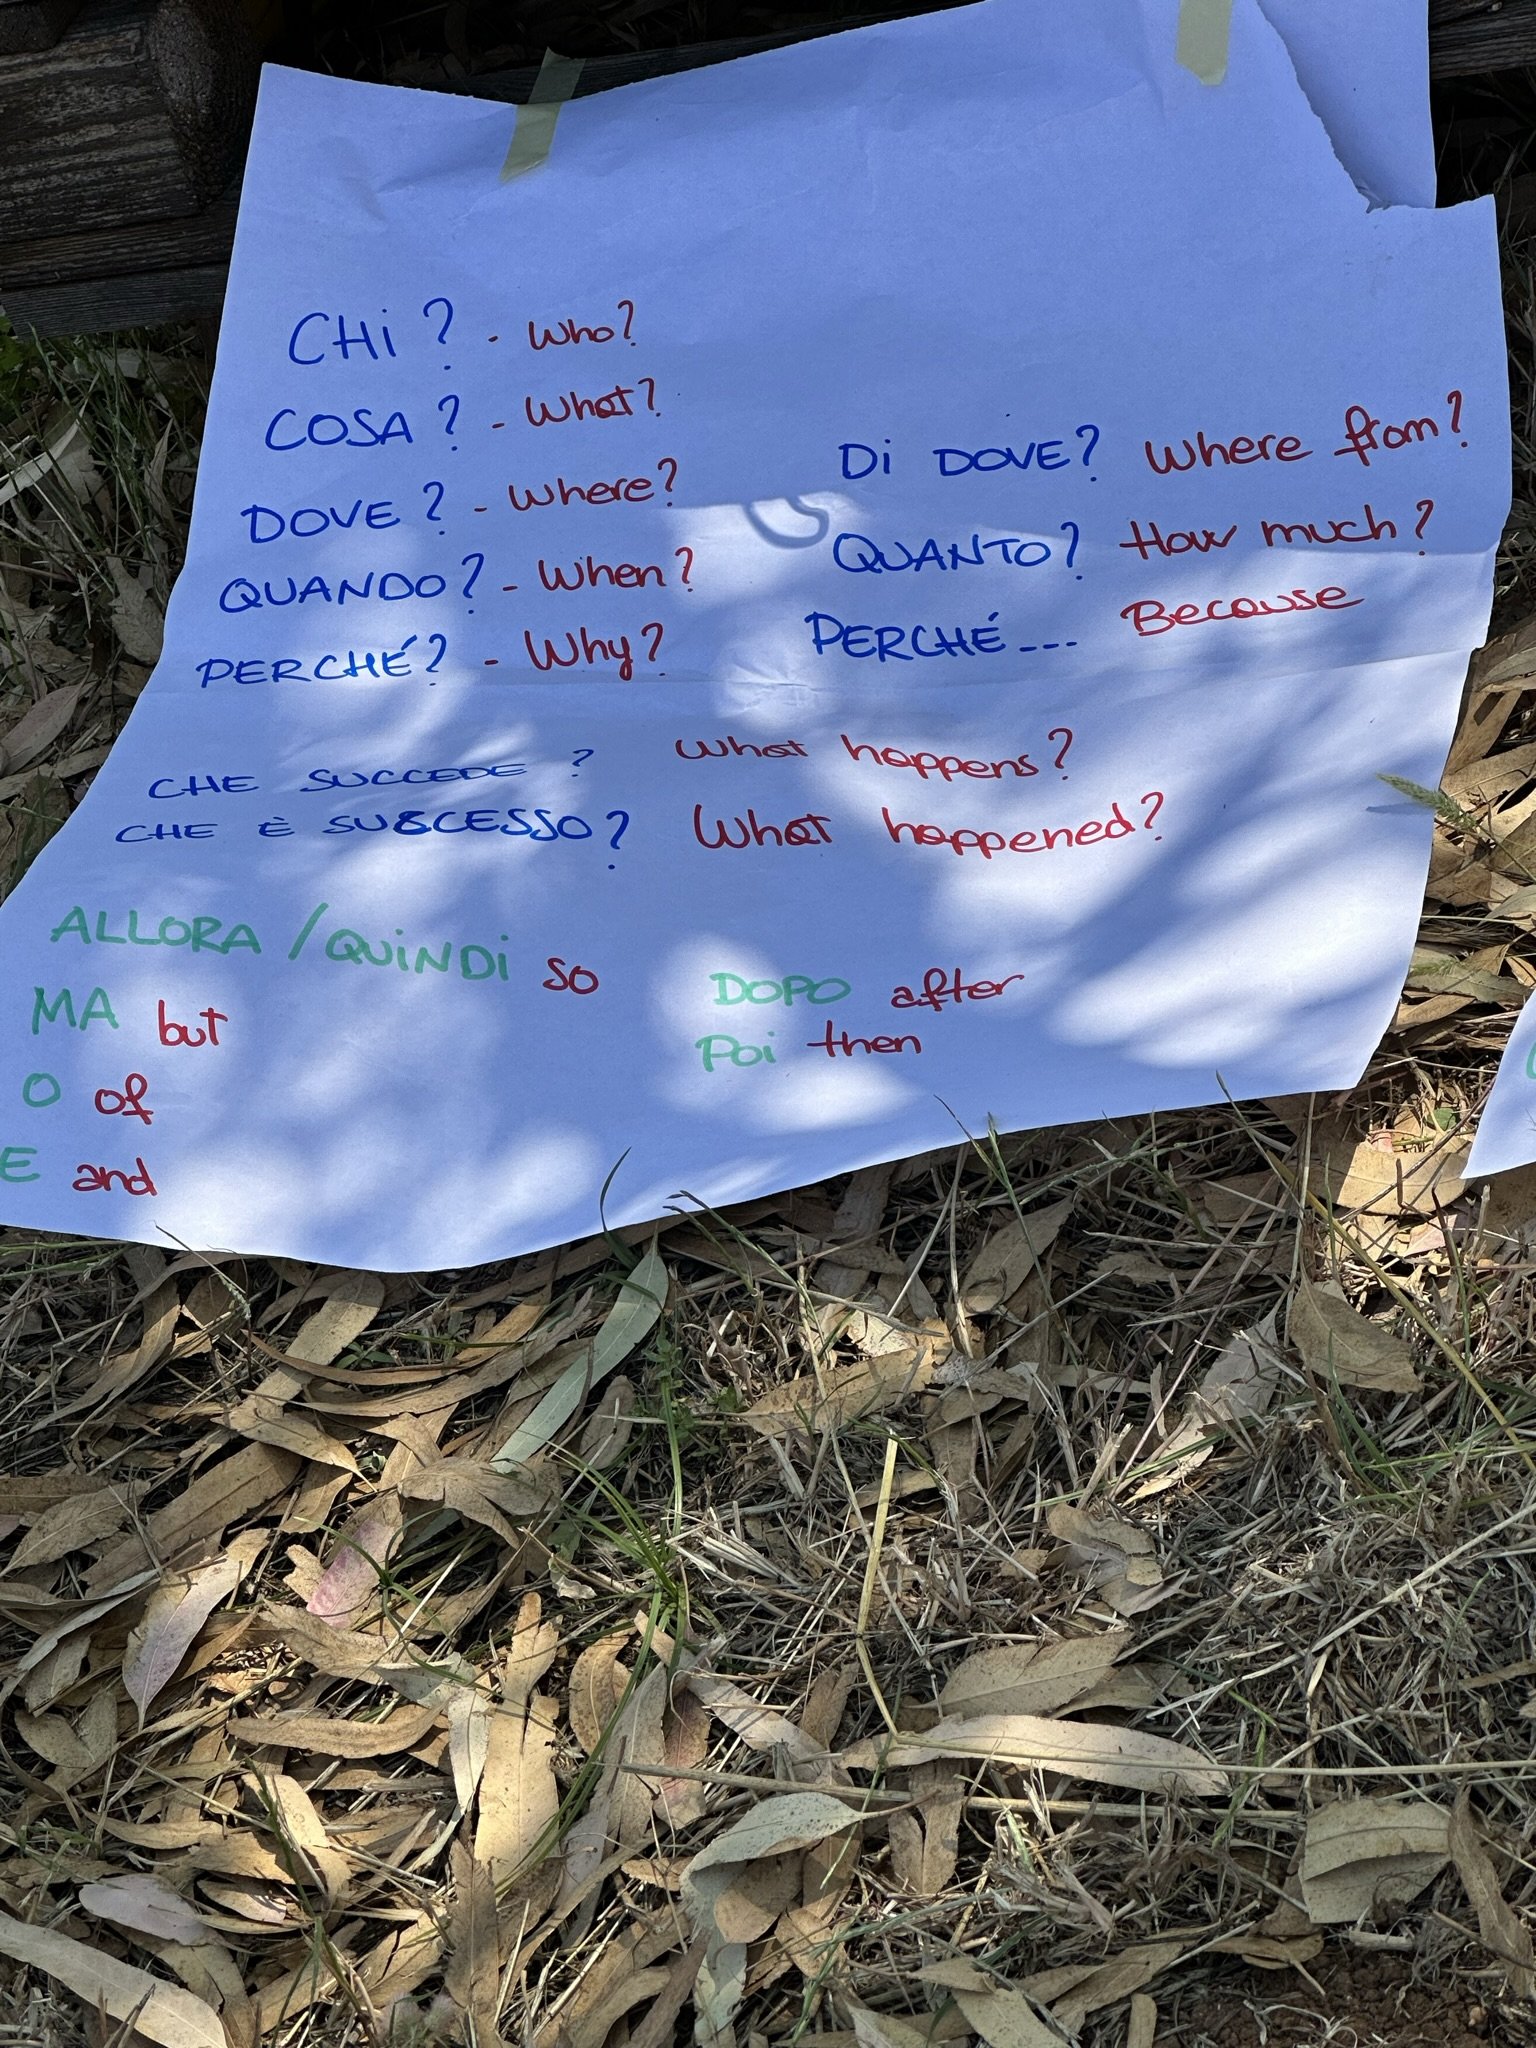 CHi? - Who?
COSA? - What?
DOVE? - Where?
QUANDO? - When?
PERCHÉ? - Why?
Di DOVE? Where from?
QUANTO? How much?
PERCHÉ... Because
CHE SUCCEDE? What happens?
CHE È SUCCESSO? What happened?
ALLORA / QUiNDi so
MA but
O of
E and
DOPO after
Poi then